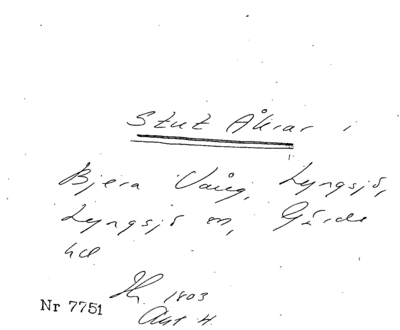 Stut Åkrar i
Bjera Vång, Lyngsjö,
Lyngsjö sn, Gärds
hd
1803
Akt 4.
Nr 7751